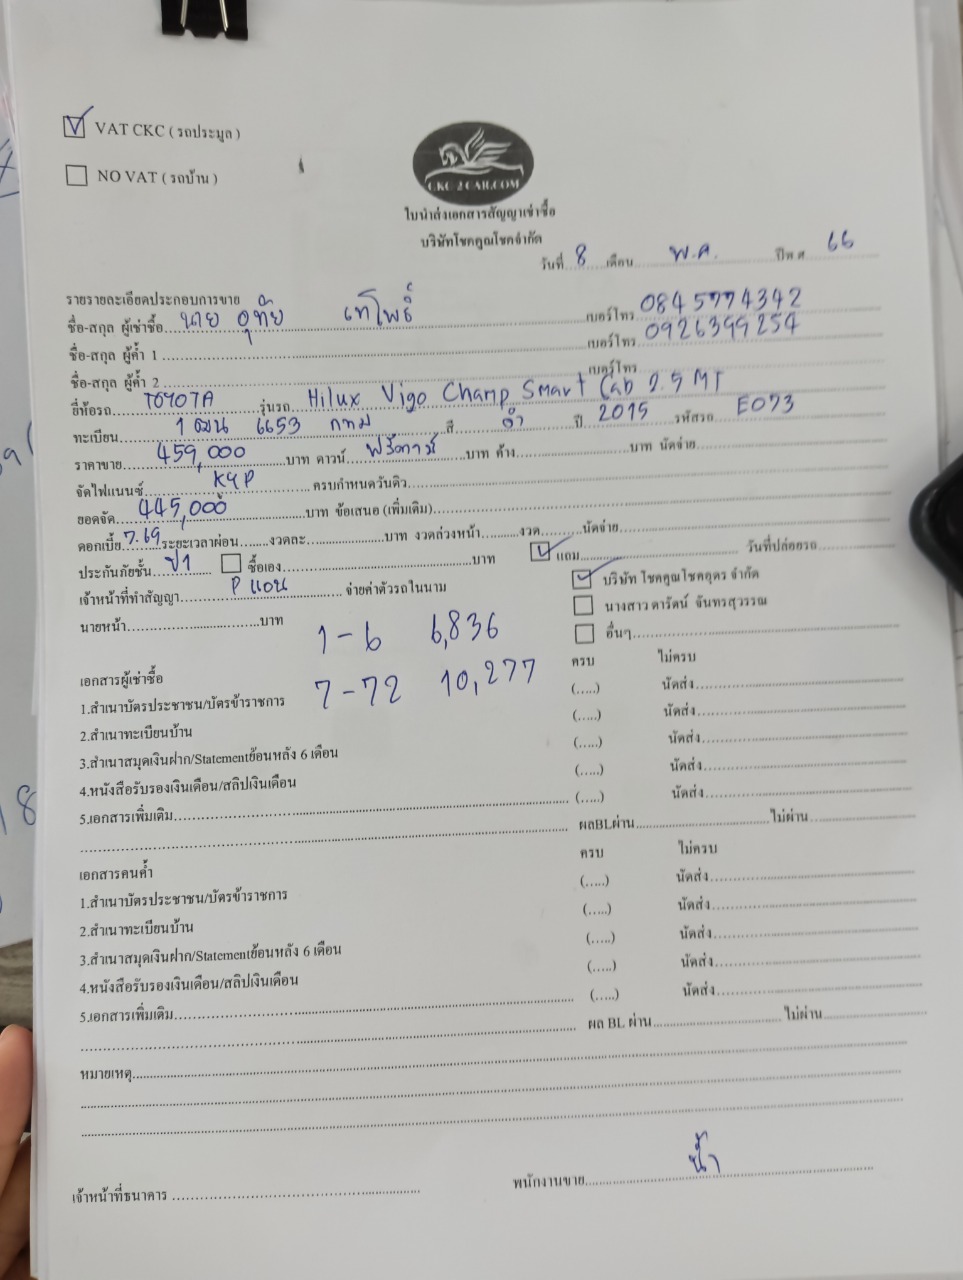 VAT CKC ( รถประมูล )
NO VAT ( รถบ้าน )
CKC 2 CAR.COM
ใบนำส่งเอกสารสัญญาเช่าซื้อ
บริษัทโชคคูณโชคจำกัด
วันที่ 8 เดือน พ.ค. ปีพ.ศ 66
รายรายละเอียดประกอบการขาย
ชื่อ-สกุล ผู้เช่าซื้อ นาย อุทัย เทโพธิ์ เบอร์โทร 0845774342
ชื่อ-สกุล ผู้ค้ำ 1 เบอร์โทร 0926399254
ชื่อ-สกุล ผู้ค้ำ 2 เบอร์โทร
ยี่ห้อรถ TOYOTA รุ่นรถ Hilux Vigo Champ Smart Cab 2.5 MT
ทะเบียน 1ฒน 6653 กทม สี ดำ ปี 2015 รหัสรถ E073
ราคาขาย 459,000 บาท ดาวน์ ฟรีดาวน์ บาท ค้าง บาท นัดจ่าย
จัดไฟแนนซ์ KKP ครบกำหนดวันคิว
ยอดจัด 445,000 บาท ข้อเสนอ (เพิ่มเติม)
ดอกเบี้ย 7.69 ระยะเวลาผ่อน งวดละ บาท งวดล่วงหน้า งวด นัดจ่าย
ประกันภัยชั้น ป1 ซื้อเอง บาท แถม วันที่ปล่อยรถ
เจ้าหน้าที่ทำสัญญา P แอน จ่ายค่าตัวรถในนาม บริษัท โชคคูณโชคอุดร จำกัด
นายหน้า บาท นางสาว ดารัตน์ จันทรสุวรรณ
1 - 6 6,836 อื่นๆ
เอกสารผู้เช่าซื้อ 7 - 72 10,277 ครบ ไม่ครบ
1.สำเนาบัตรประชาชน/บัตรข้าราชการ (.....) นัดส่ง
2.สำเนาทะเบียนบ้าน (.....) นัดส่ง
3.สำเนาสมุดเงินฝาก/Statementย้อนหลัง 6 เดือน (.....) นัดส่ง
4.หนังสือรับรองเงินเดือน/สลิปเงินเดือน (.....) นัดส่ง
5.เอกสารเพิ่มเติม (.....) นัดส่ง
ผลBLผ่าน ไม่ผ่าน
เอกสารคนค้ำ ครบ ไม่ครบ
1.สำเนาบัตรประชาชน/บัตรข้าราชการ (.....) นัดส่ง
2.สำเนาทะเบียนบ้าน (.....) นัดส่ง
3.สำเนาสมุดเงินฝาก/Statementย้อนหลัง 6 เดือน (.....) นัดส่ง
4.หนังสือรับรองเงินเดือน/สลิปเงินเดือน (.....) นัดส่ง
5.เอกสารเพิ่มเติม (.....) นัดส่ง
ผล BL ผ่าน ไม่ผ่าน
หมายเหตุ
เจ้าหน้าที่ธนาคาร พนักงานขาย น้ำ